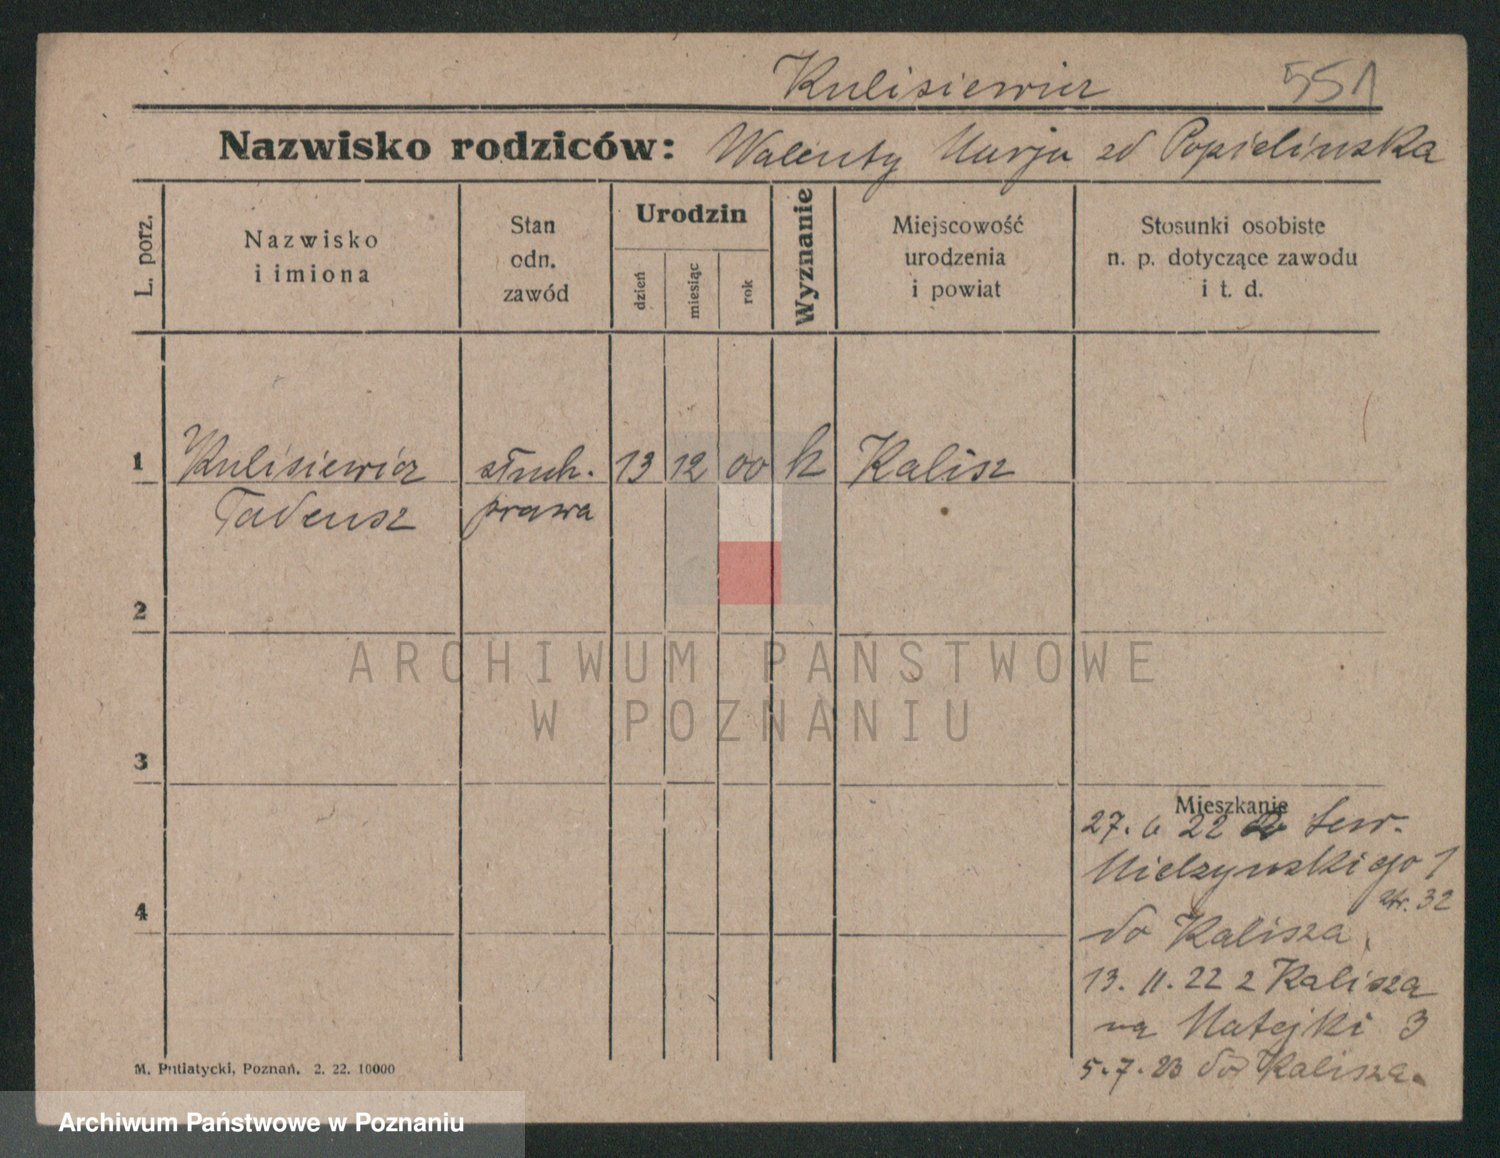 Kulisiewicz 551
Nazwisko rodziców: Walenty Marja zd Popielinska
L. porz.
Nazwisko
i imiona
Stan
odn.
zawód
Urodzin
dzień
miesiąc
rok
Wyznanie
Miejscowość
urodzenia
i powiat
Stosunki osobiste
n. p. dotyczące zawodu
i t. d.
1 Kulisiewicz słuch. 13 12 00 k Kalisz
Tadeusz prawa
2
ARCHIWUM PAŃSTWOWE
W POZNANIU
3
Mieszkanie
27. 6 22
Mielzynskiego 1
str. 32
4
do Kalisza
13. 11. 22 z Kalisza
na Matejki 3
5. 7. 23 do Kalisza.
M. Putiatycki, Poznań. 2. 22. 10000
Archiwum Państwowe w Poznaniu